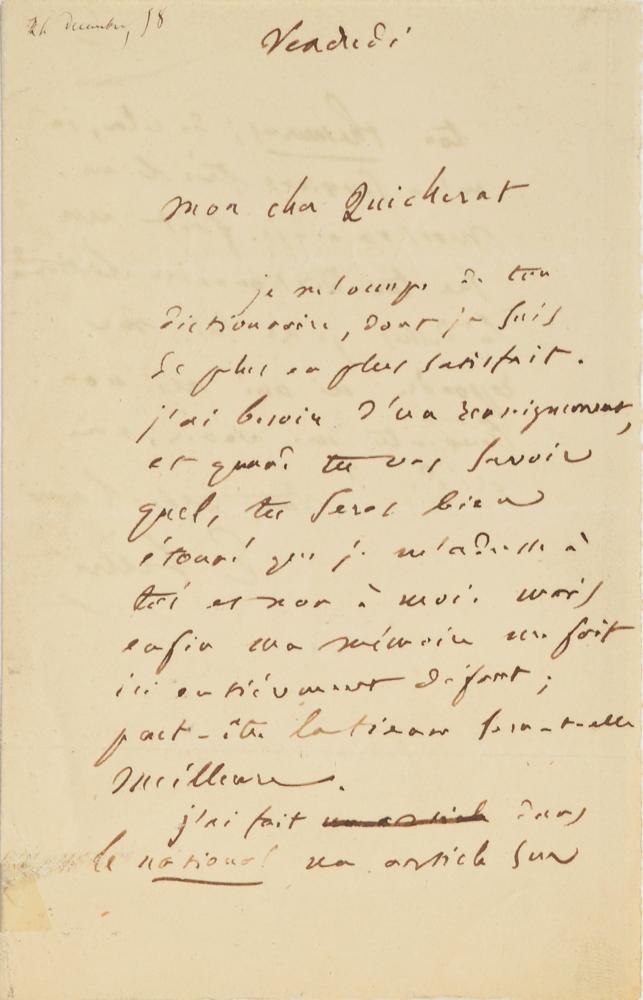 décembre, 58
Vendredi
mon cher Quicherat
je m'occupe de ton
dictionnaire, dont je suis
de plus en plus satisfait.
j'ai besoin d'un renseignement,
et quand tu vas savoir
quel, tu seras bien
étonné que je m'adresse à
toi et non à moi. mais
enfin ma mémoire me fait
ici entièrement défaut ;
peut-être la tienne sera-t-elle
meilleure.
j'ai fait un article dans
le national un article sur